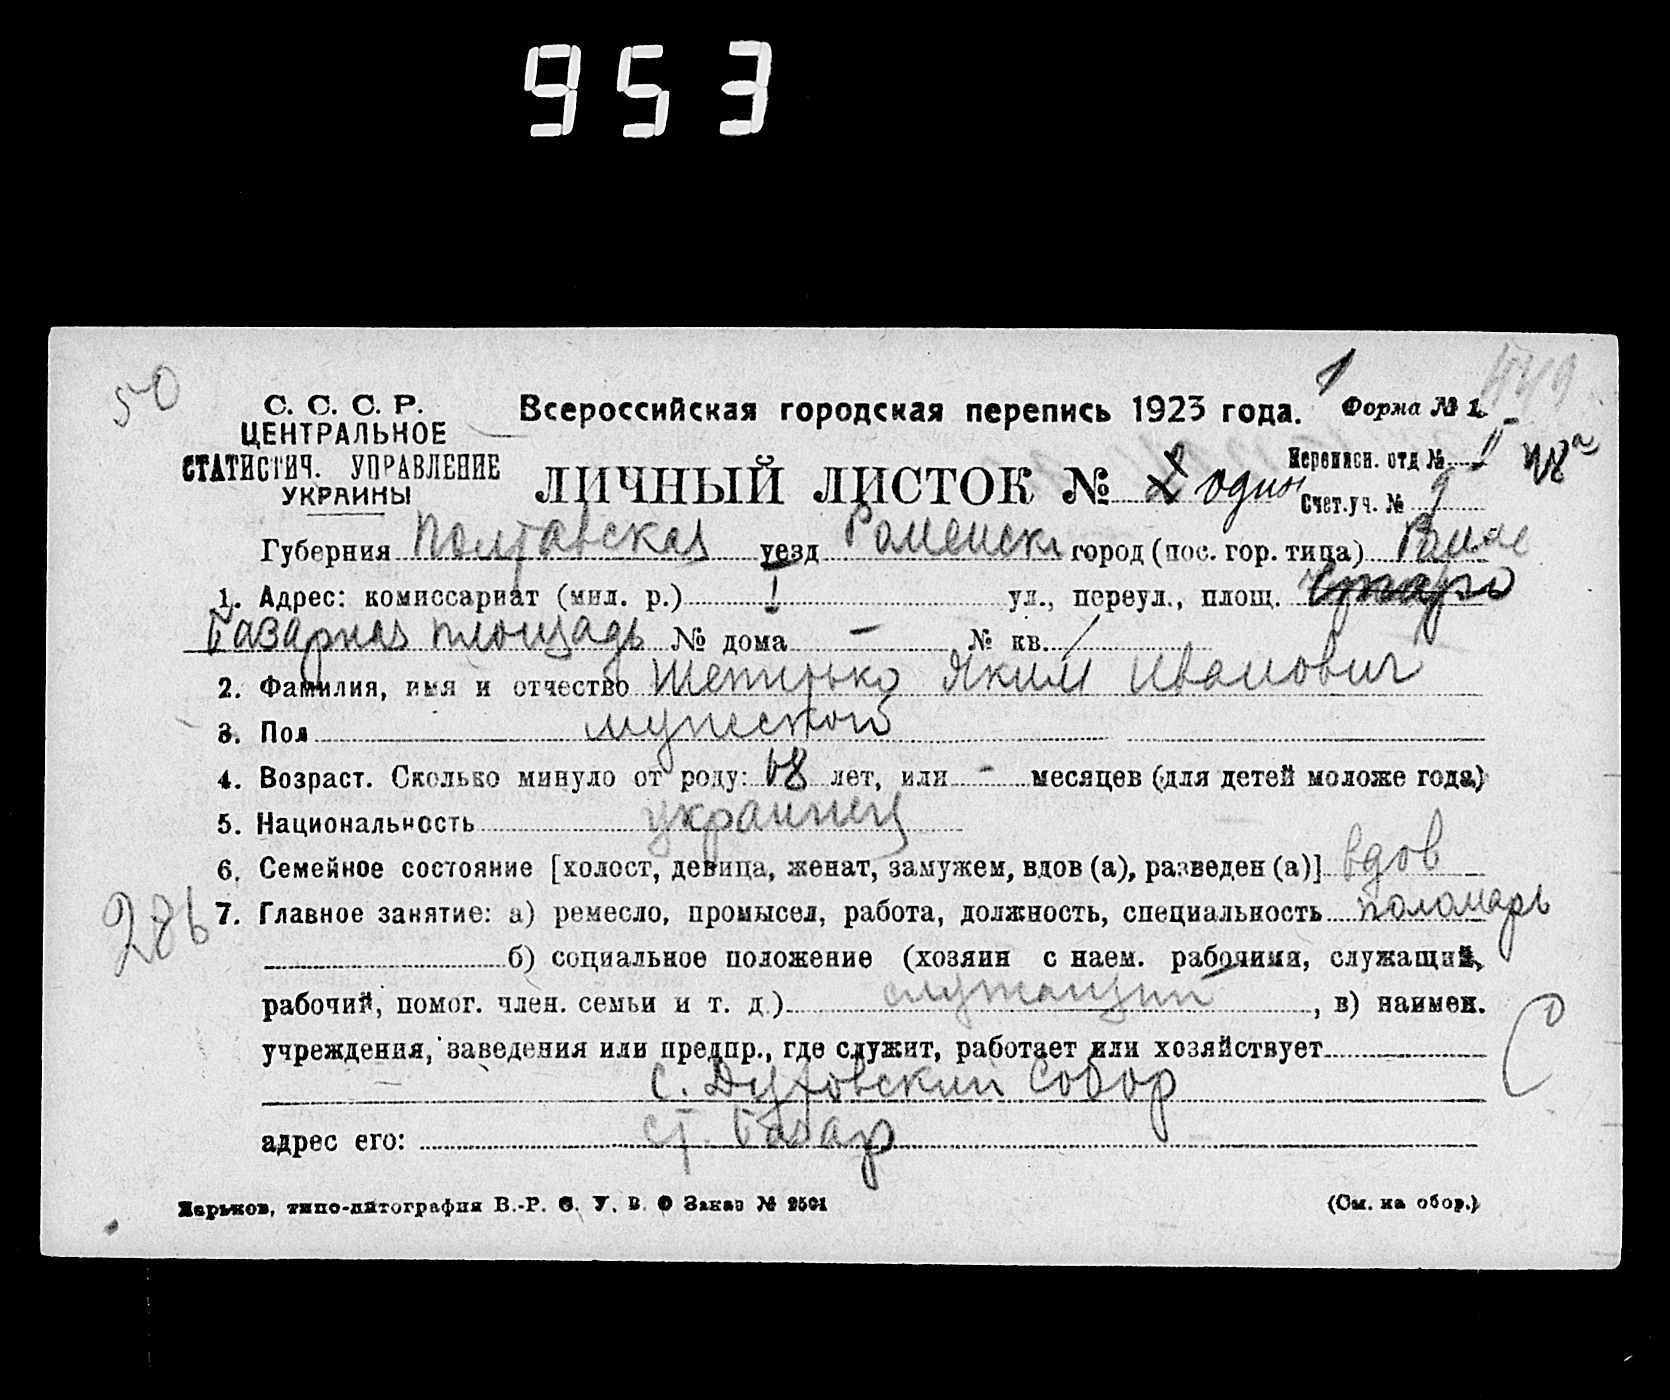 953
50
С. С. С. Р.
ЦЕНТРАЛЬНОЕ
СТАТИСТИЧ. УПРАВЛЕНИЕ
УКРАИНЫ
Всероссийская городская перепись 1923 года. 1 Форма № 1.
ЛИЧНЫЙ ЛИСТОК № один
Переписн. отд №
Счет.уч. № 9
Губерния Полтавская уезд Роменск город (пос. гор. типа)
1. Адрес: комиссариат (мил. р.) 1 ул., переул., площ. Старо
базарная площадь № дома – № кв.
2. Фамилия, имя и отчество Яким Иванович
3. Пол мужеской
4. Возраст. Сколько минуло от роду: 68 лет, или - месяцев (для детей моложе года)
5. Национальность украинец
6. Семейное состояние [холост, девица, женат, замужем, вдов (а), разведен (а)] вдов
286
7. Главное занятие: а) ремесло, промысел, работа, должность, специальность поломарь
б) социальное положение (хозяин с наем. рабочими, служащий,
рабочий, помог. член. семьи и т. д.) служащий, в) наимен.
учреждения, заведения или предпр., где служит, работает или хозяйствует
с. Собор
адрес его: ст. базар
Харьков, типо-литография В.-Р. С. У. В. О Заказ № 2501
(См. на обор.)